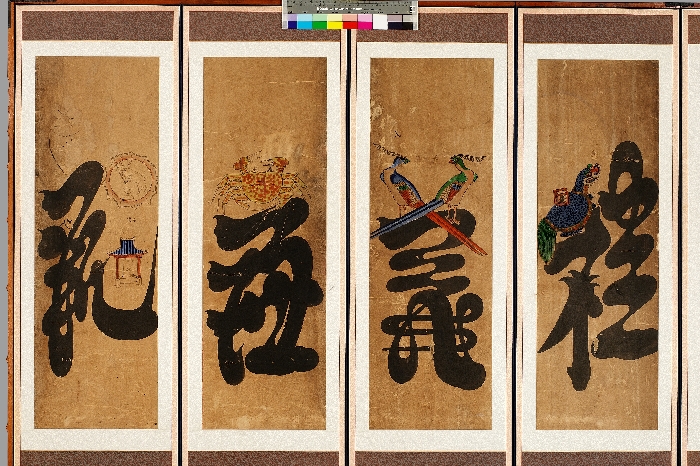 禮
義
廉
恥